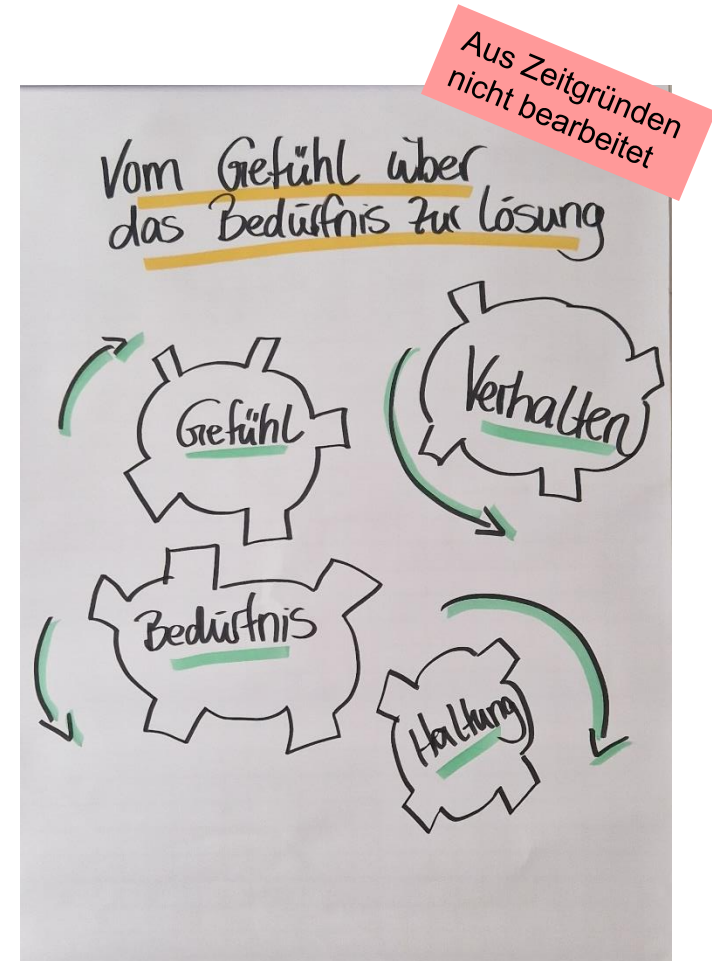 Aus Zeitgründen
nicht bearbeitet
Vom Gefühl über
das Bedürfnis zur Lösung
Gefühl
Verhalten
Bedürfnis
Haltung